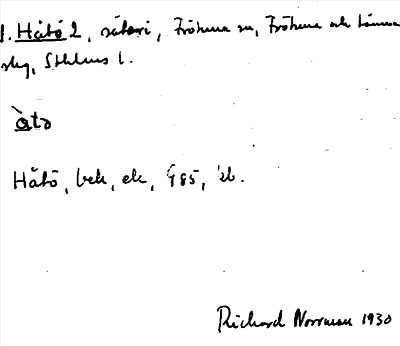 1. Håtö 2, säteri, Frötuna sn, Frötuna och Länna
skg, Sthlms l.
Håtö, bek, ek, 985, 
Richard Norrman 1930